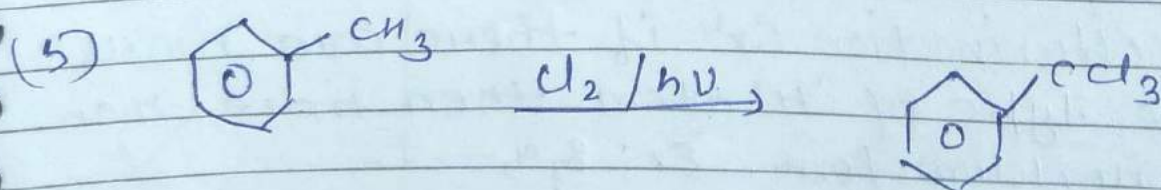 (5) CH3 Cl2/hν CCl3